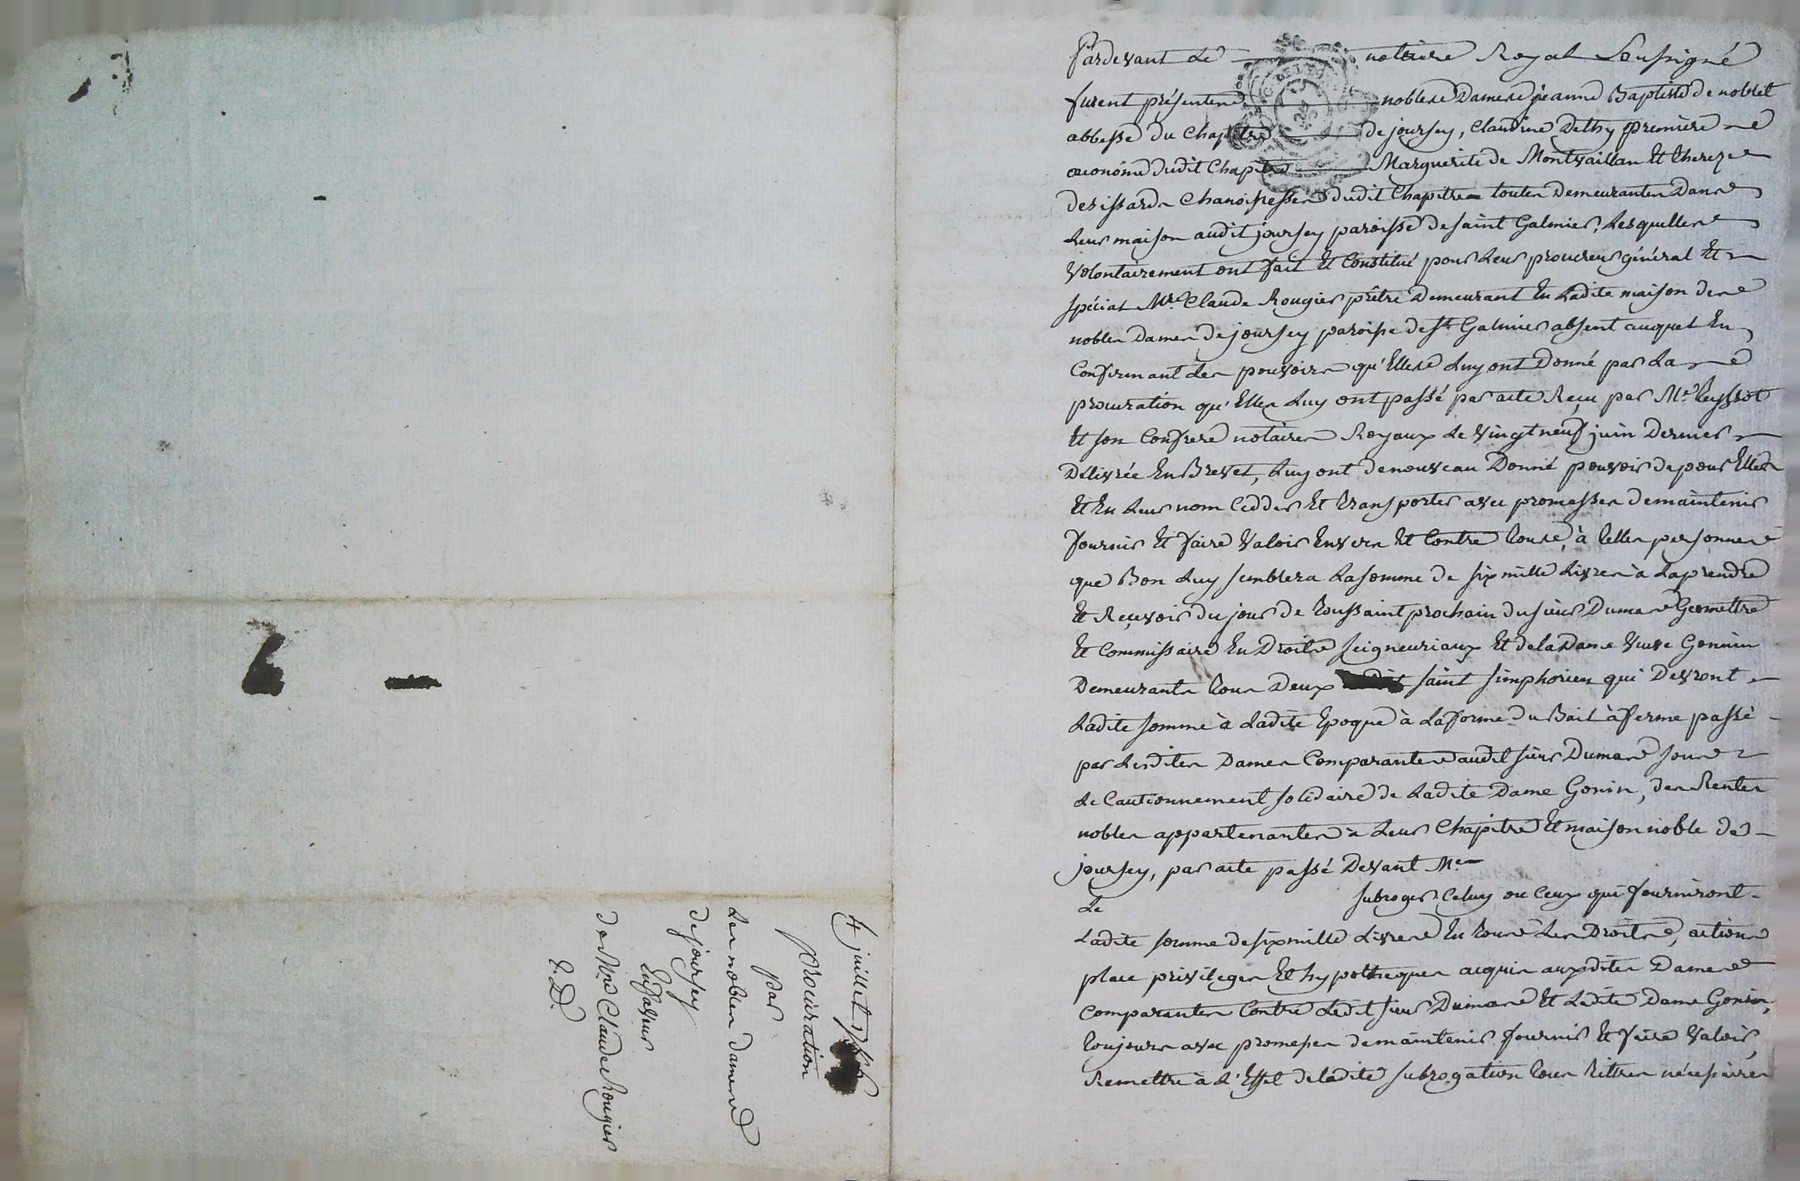 Pardevant Le notaire Royal Soussigné
furent présentes nobles Dames jeanne Baptiste de noblet
abbesse du Chapitre de joursey, Claudine Dethy première
œconôme dudit Chapitre Marguerite de Montvaillan Et therese
des issards Chanoinesses dudit Chapitre toutes Demeurantes Dans
Leur maison audit joursey paroisse de saint Galmier, Lesquelles
volontairement ont fait Et Constitué pour Leur procureur général Et
spécial Mre Claude Rougier prêtre Demeurant En Ladite maison des
nobles Dames de joursey paroisse de St Galmier absent auquel En
Confirmant Les pouvoirs qu'Elles Luy ont Donné par La
procuration qu'Elles Luy ont passé par acte Reçu par Me Peyssot
Et son Confrere notaires Royaux Le vingt neuf juin Dernier
Délivrée En Brevet, Luy ont de nouveau Donné pouvoir de pour Elles
Et En Leur nom Cedder Et transporter avec promesses de maintenir
fournir Et faire valoir Envers Et Contre tous, à telles personnes
que Bon Luy semblera La somme de six mille Livres à La prendre
Et Reçevoir du jour de toussaint prochain du sieur Dumas Geomettre
Et Commissaire En Droits seigneuriaux Et de la Dame veuve Gonin
Demeurants tous Deux saint simphorien qui Devront
Ladite somme à Ladite Epoque à La forme du Bail à ferme passé
par Lesdites Dames Comparantes audit sieur Dumas sous
Le Cautionnement solidaire de Ladite Dame Gonin, des Rentes
nobles appartenantes à Leur Chapitre Et maison noble de
joursey, par acte passé Devant Me
Le subroger Celuy ou Ceux qui fourniront
Ladite somme de six mille Livres En tous Les Droits, actions
place privileges Et hypotheques acquis auxdites Dames
Comparantes Contre Ledit sieur Dumas Et Ladite Dame Gonin,
toujours avec promesses de maintenir fournir Et faire valoir,
Remettre à L'Effet de ladite subrogation tous titres nécessaires
4 juillet
procuration
par
Les nobles dames
de joursey
En faveur
de Mre Claude Rougier
E.D.